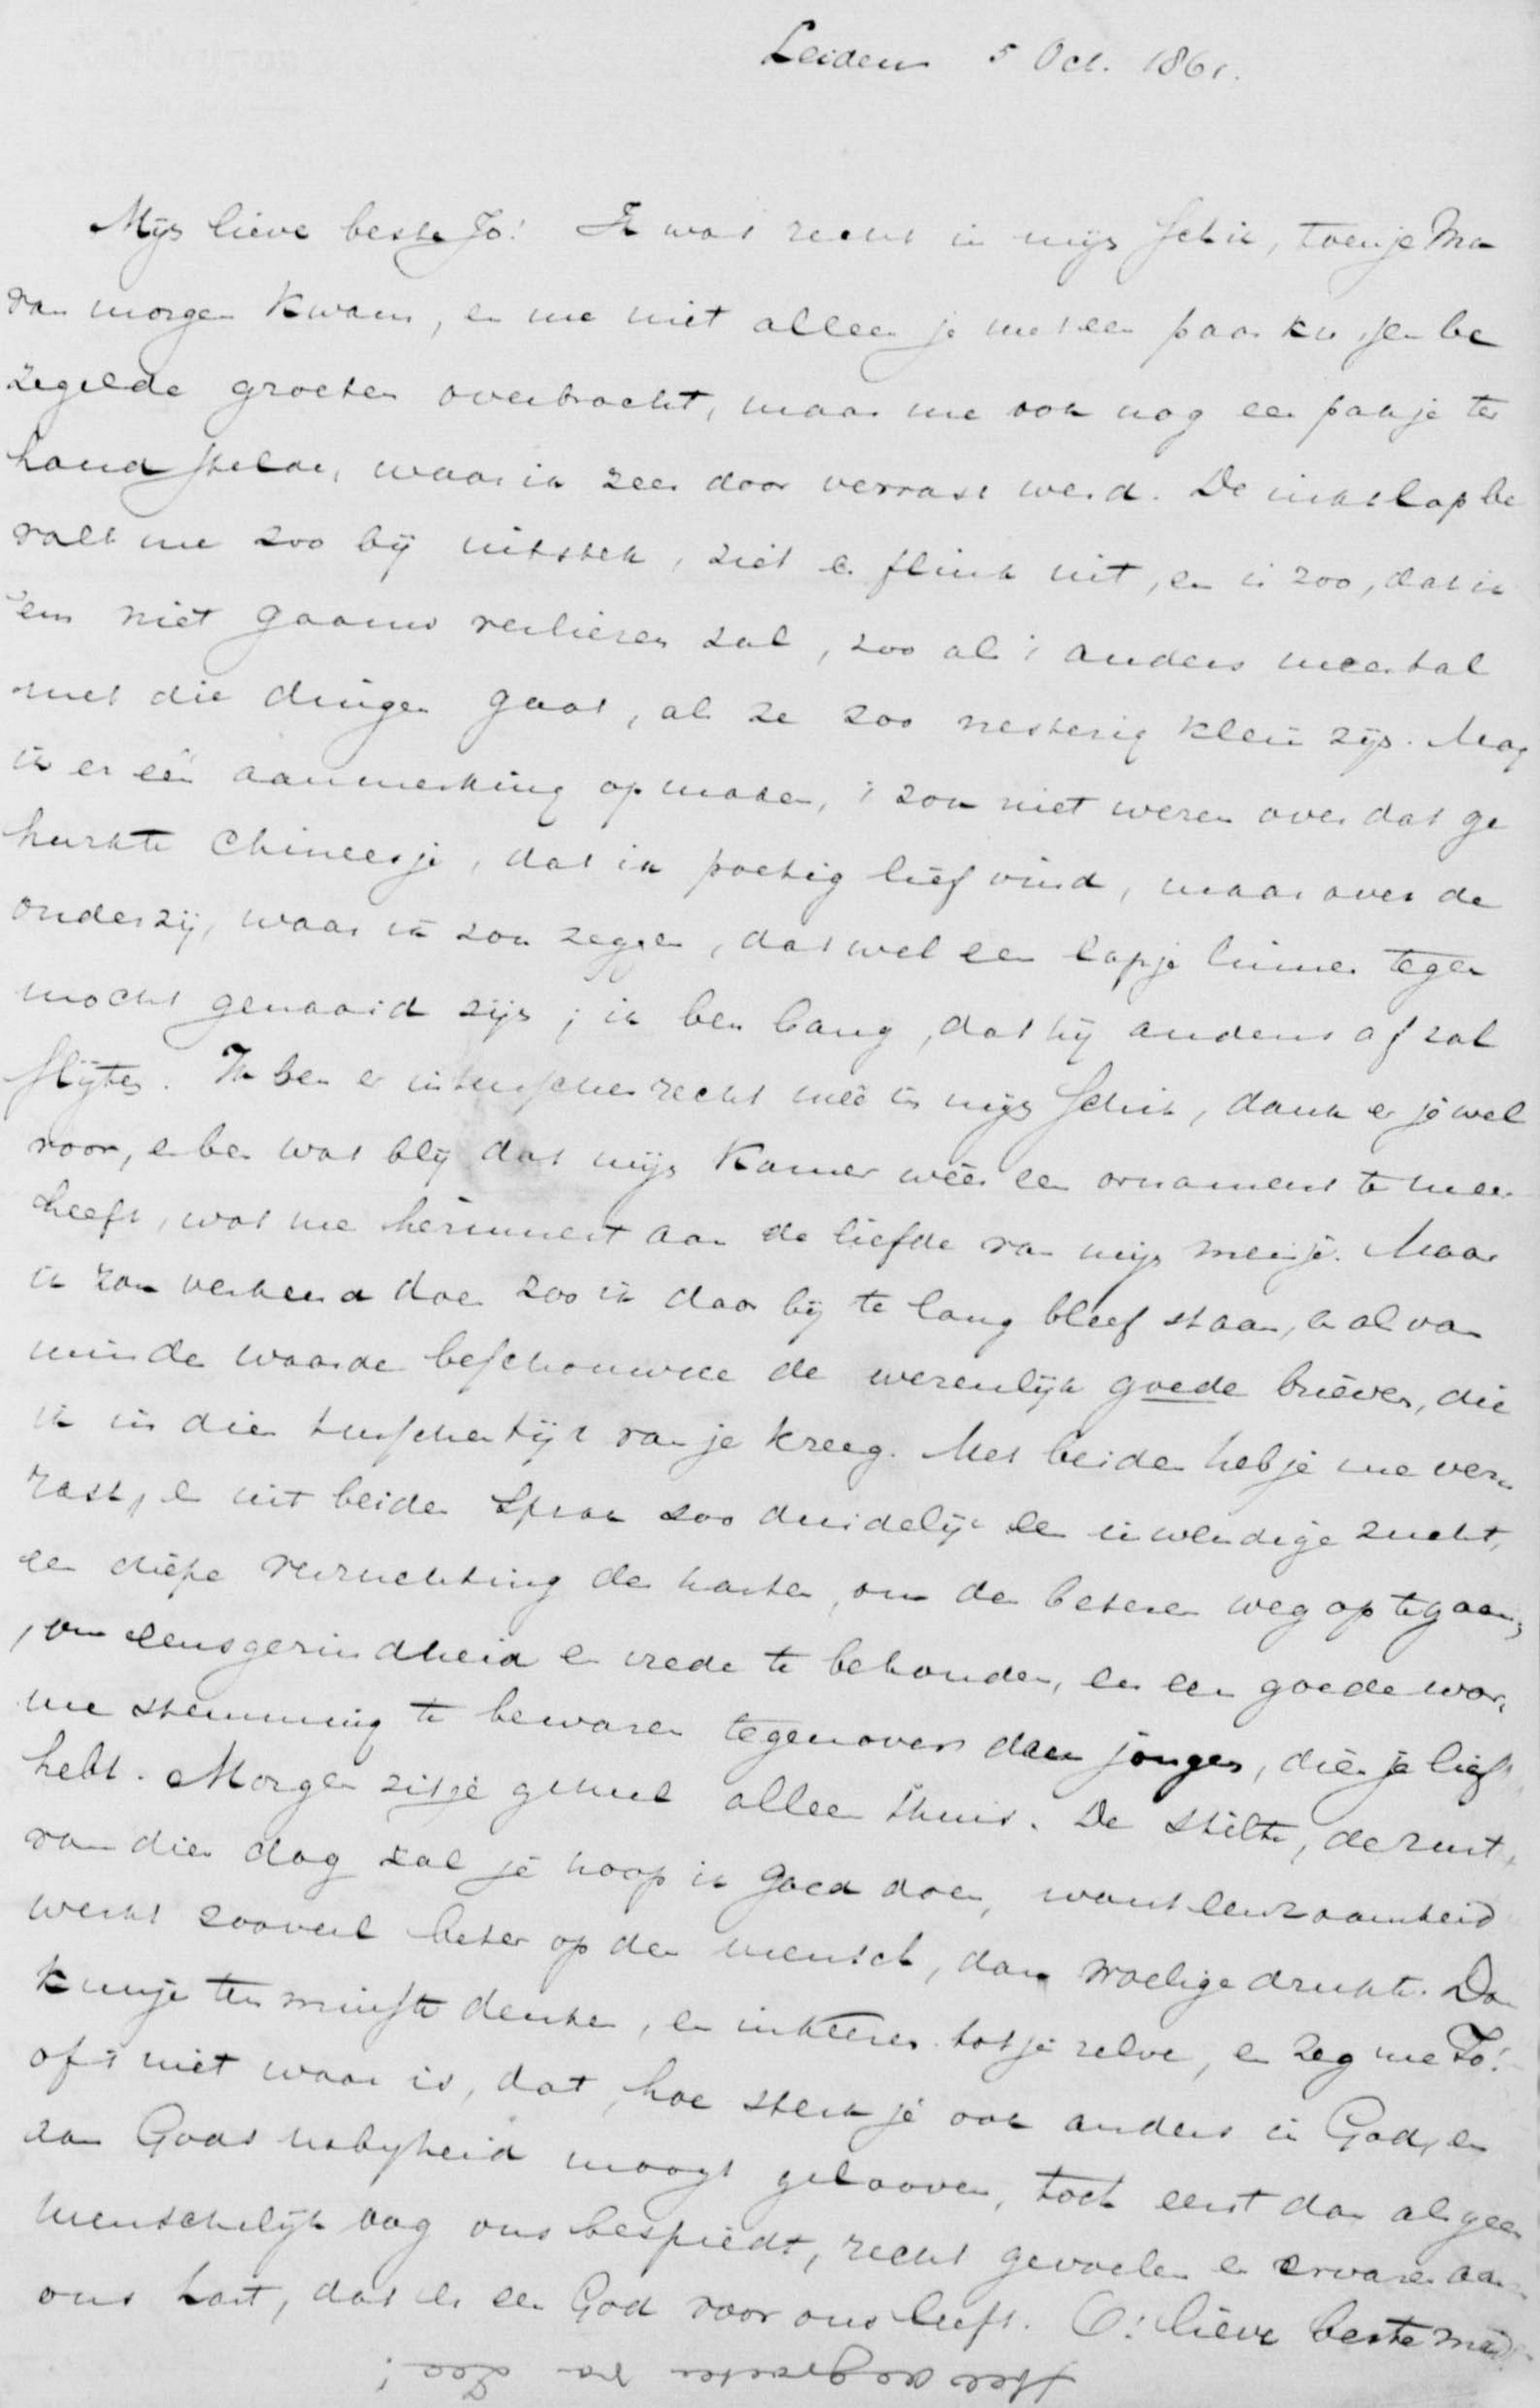 Leiden 5 Oct. 1861.
Mijn lieve beste Jo! Ik was recht in mijn schik, toen je Ma
van morgen kwam, en me niet alleen je met een paar kussen be
zegelde groeten overbracht, maar me ook nog een pakje ter
hand stelde, waar ik zeer door verrast werd. De inktlap be
valt me zoo bij uitstek, ziet er flink uit, en is zoo, dat ik
'em niet gaauw verliezen zal, zoo als 't anders meestal
met die dingen gaat, als ze zoo nesterig klein zijn. Mag
ik er één aanmerking op maken, 't zou niet wezen over dat ge
hurkte Chineesje, dat ik poetig lief vind, maar over de
onderzij, waar ik zou zeggen, dat wel een lapje linnen tegen
mocht genaaid zijn; ik ben bang, dat hij anders af zal
slijten. Ik ben er intusschen recht meê in mijn schik, dank er je wel
voor, en ben wat blij dat mijn Kamer wêer een ornament te meer
heeft, wat me herinnert aan de liefde van mijn meisje. Maar
ik zou verkeerd doen zoo ik daar bij te lang bleef staan, en als van
minder waarde beschouwde de wezenlijk goede brieven, die
ik in dien tusschentijd van je kreeg. Met beiden heb je me ver
rast, en uit beiden sprak zoo duidelijk een inwendige zucht,
een diepe verzuchting des harten, om den beteren weg op te gaan,
om eensgezindheid en vrede te behouden, en een goede war
me stemming te bewaren tegenover den jongen, dien je lief
hebt. Morgen zit je geheel alleen thuis. De stilte, de rust
van dien dag zal je hoop ik goed doen, want eenzaamheid
werkt zooveel beter op den mensch, dan woelige drukte. Dan
kun je ten minste denken, en inkeeren tot je zelve, en zeg me Jo!
of 't niet waar is, dat, hoe sterk je ook anders in God, en
aan Gods nabijheid moogt gelooven, toch eerst dan als geen
menschelijk oog ons bespiedt, recht gevoelen en ervaren aan
ons hart, dat er een God voor ons leeft. O! lieve beste meid